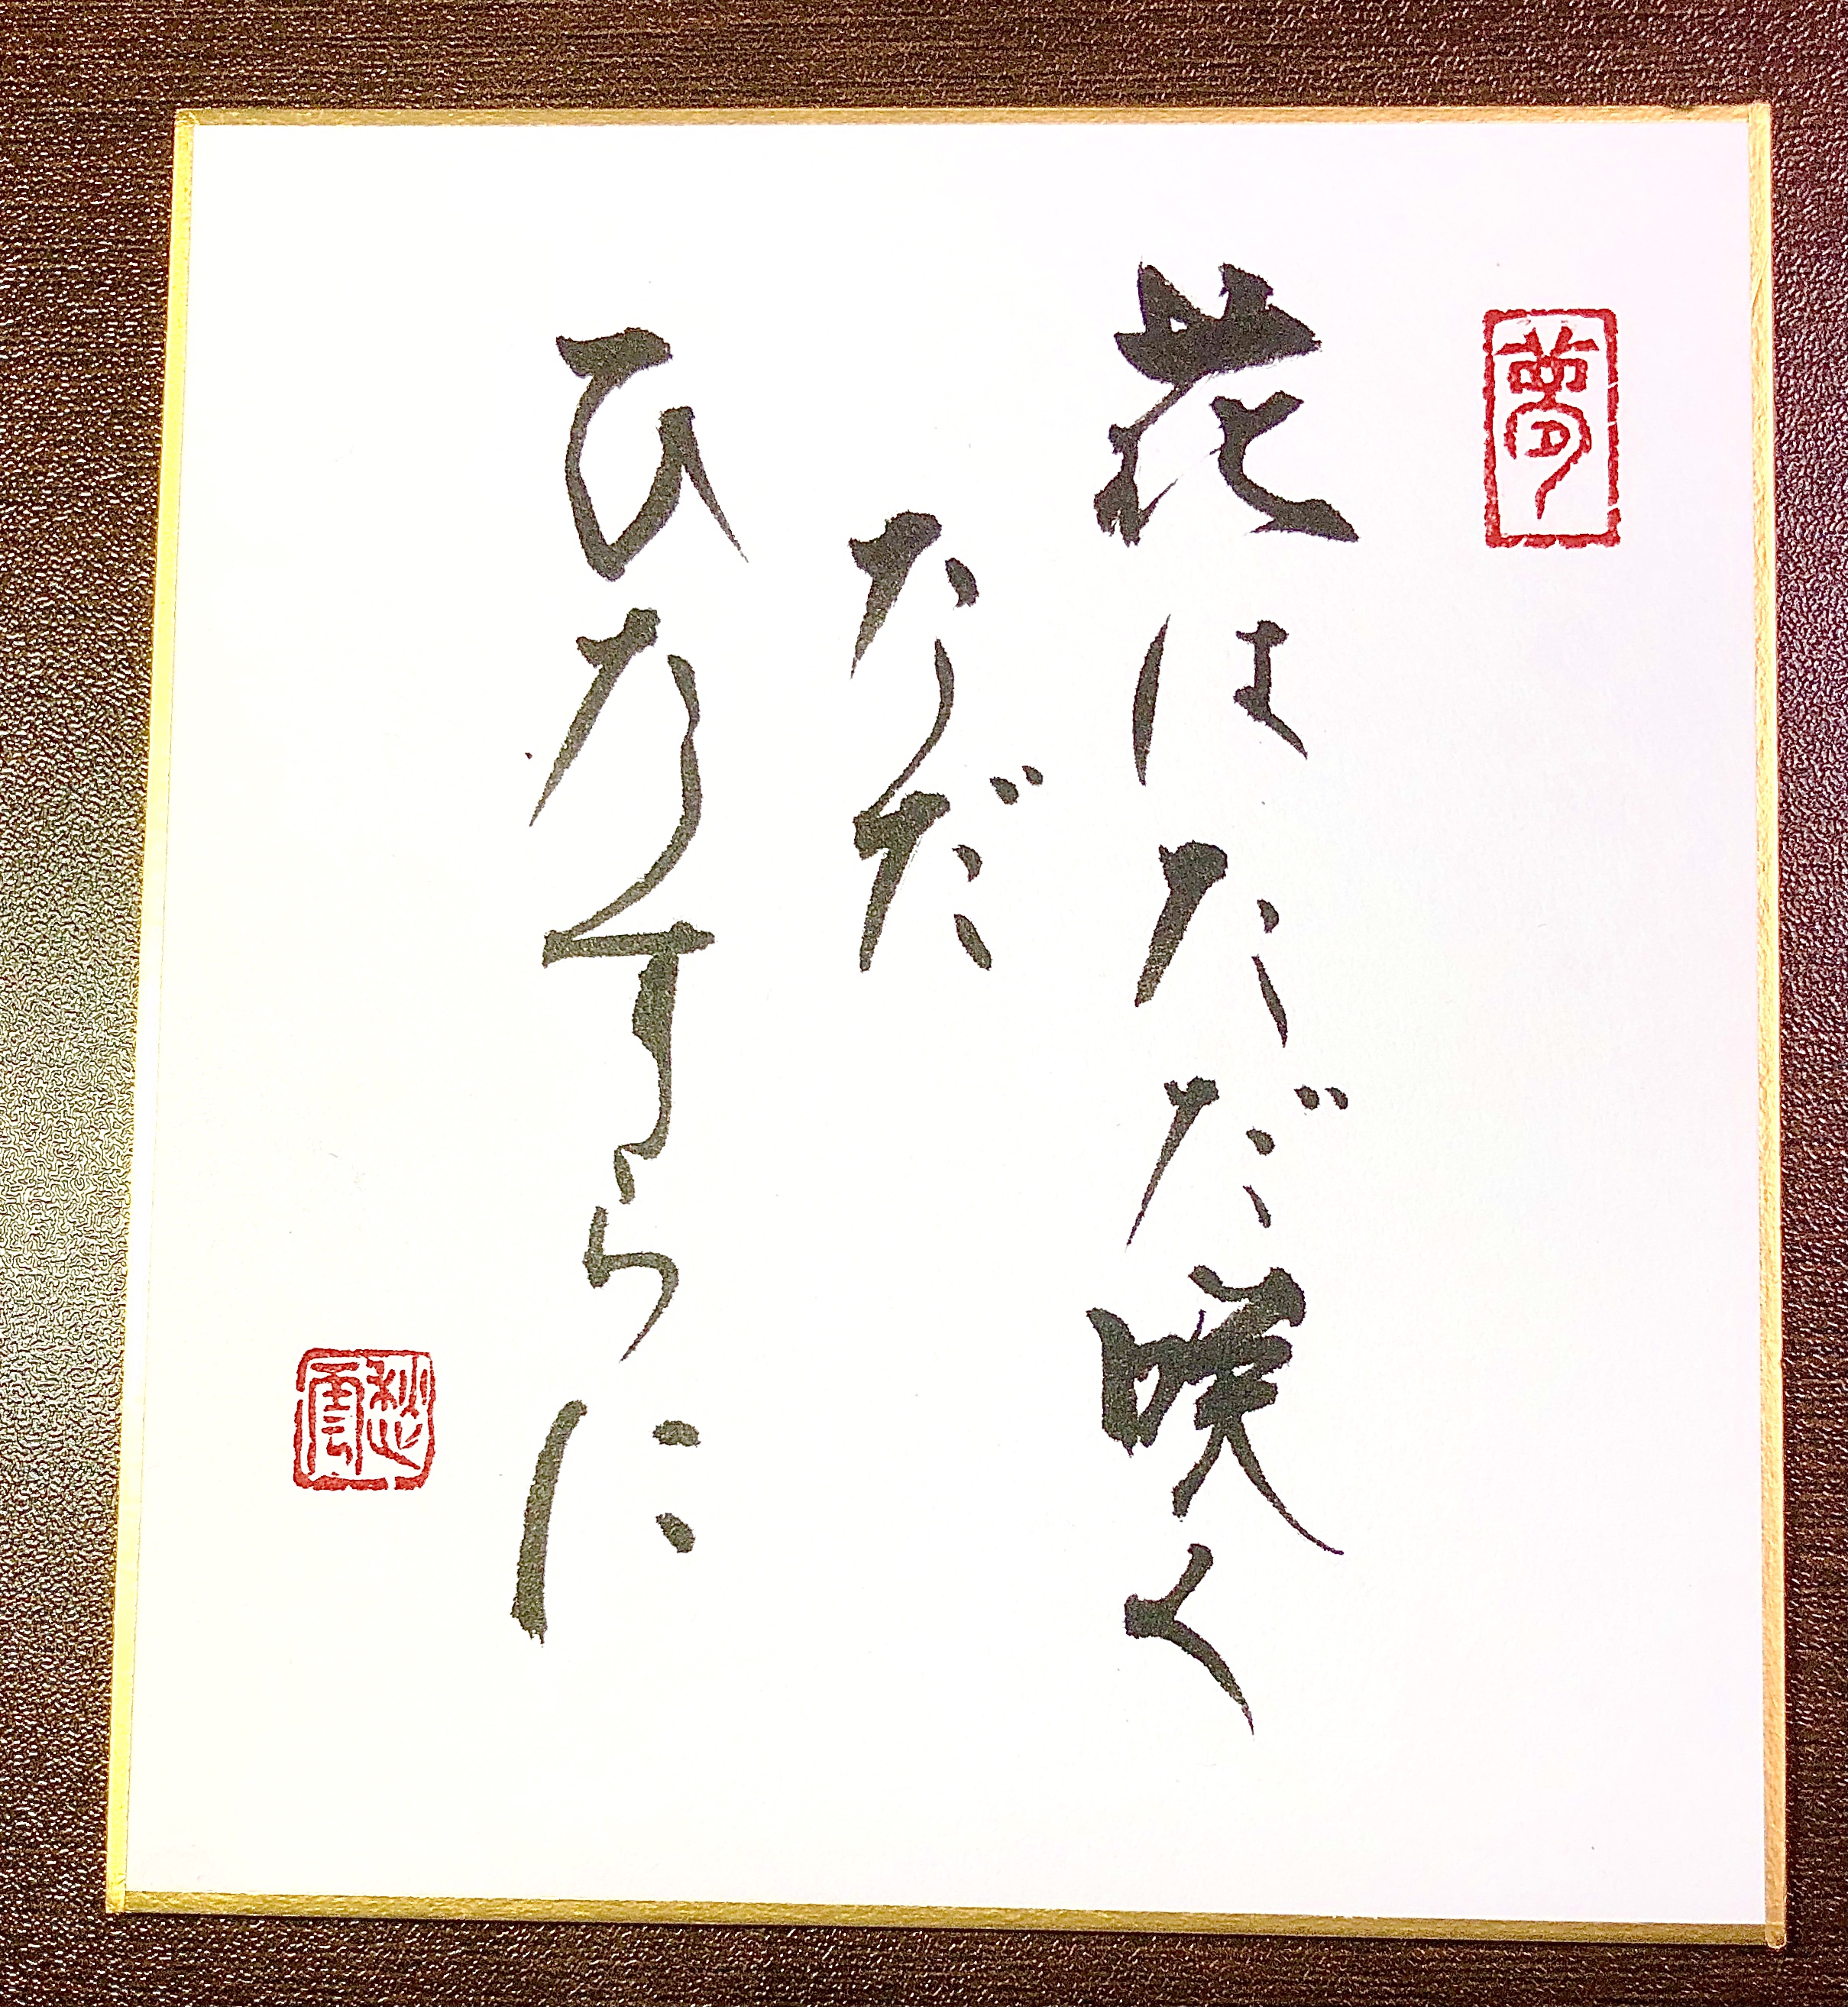 夢
花はただ咲く
ただ
ひたすらに